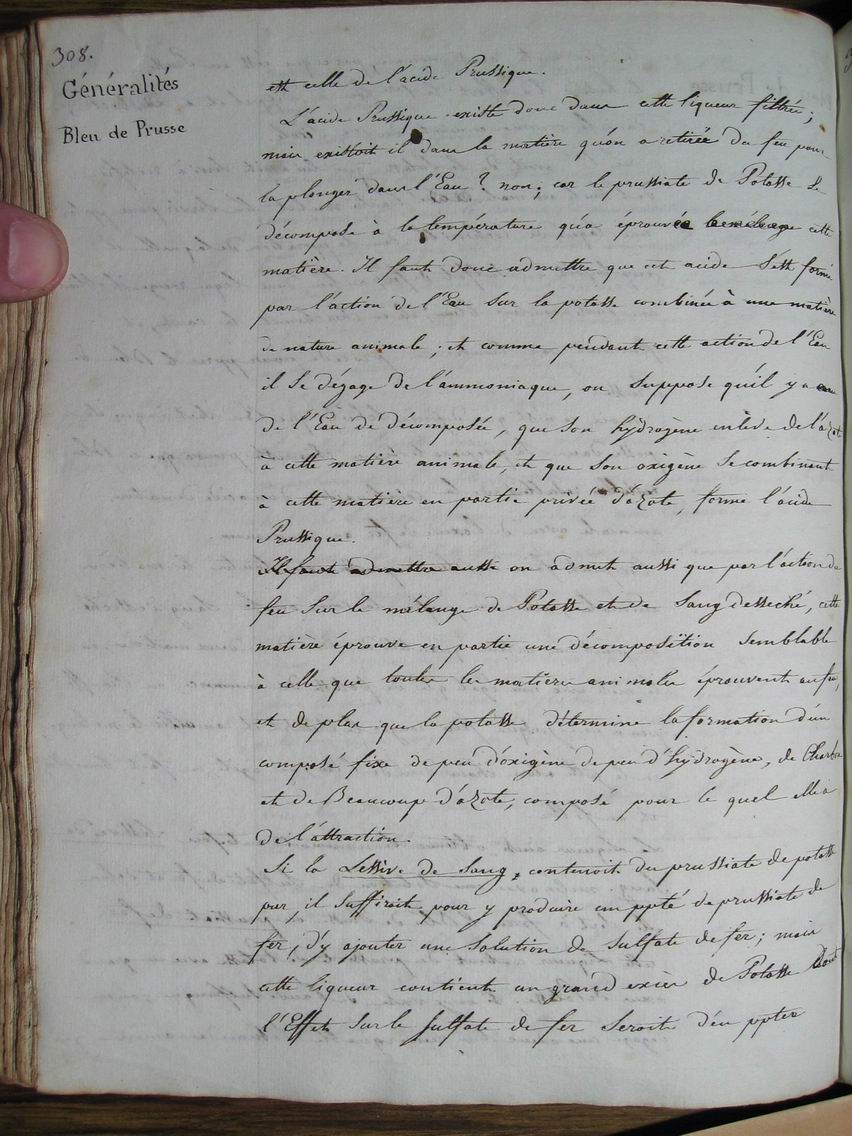 308.
Généralités
Bleu de Prusse
est celle de l'acide Prussique.
L'acide Prussique existe donc dans cette liqueur filtrée;
mais existoit il dans la matière qu'on a retirée du feu pour
la plonger dans l'Eau? non; car le prussiate de Potasse se
décompose à la température qu'a éprouvée le mélange cette
matière. Il faut donc admettre que cet acide s'est formé
par l'action de l'Eau sur la potasse combinée à une matière
de nature animale; et comme pendant cette action de l'Eau
il se dégage de l'ammoniaque, on suppose qu'il y a
de l'Eau de décomposée, que son hydrogène enlève de l'azot
à cette matière animale, et que son oxigène se combinant
à cette matière en partie privée d'azote, forme l'acide
Prussique.
Il faut admettre aussi on admet aussi que par l'action du
feu sur le mélange de Potasse et de sang desséché, cette
matière éprouve en partie une décomposition semblable
à celle que toutes les matières animales éprouvent au feu,
et de plus que la potasse détermine la formation d'un
composé fixe de peu d'oxigène de peu d'hydrogène, de Charbon
et de Beaucoup d'azote, composé pour le quel elle a
de l'attraction.
Si la Lessive de sang, contenoit du prussiate de potasse
pur, il suffiroit pour y produire un ppté de prussiate de
fer, d'y ajouter une solution de sulfate de fer; mais
cette liqueur contient un grand excès de Potasse dont
l'Effet sur le sulfate de fer seroit d'en ppter